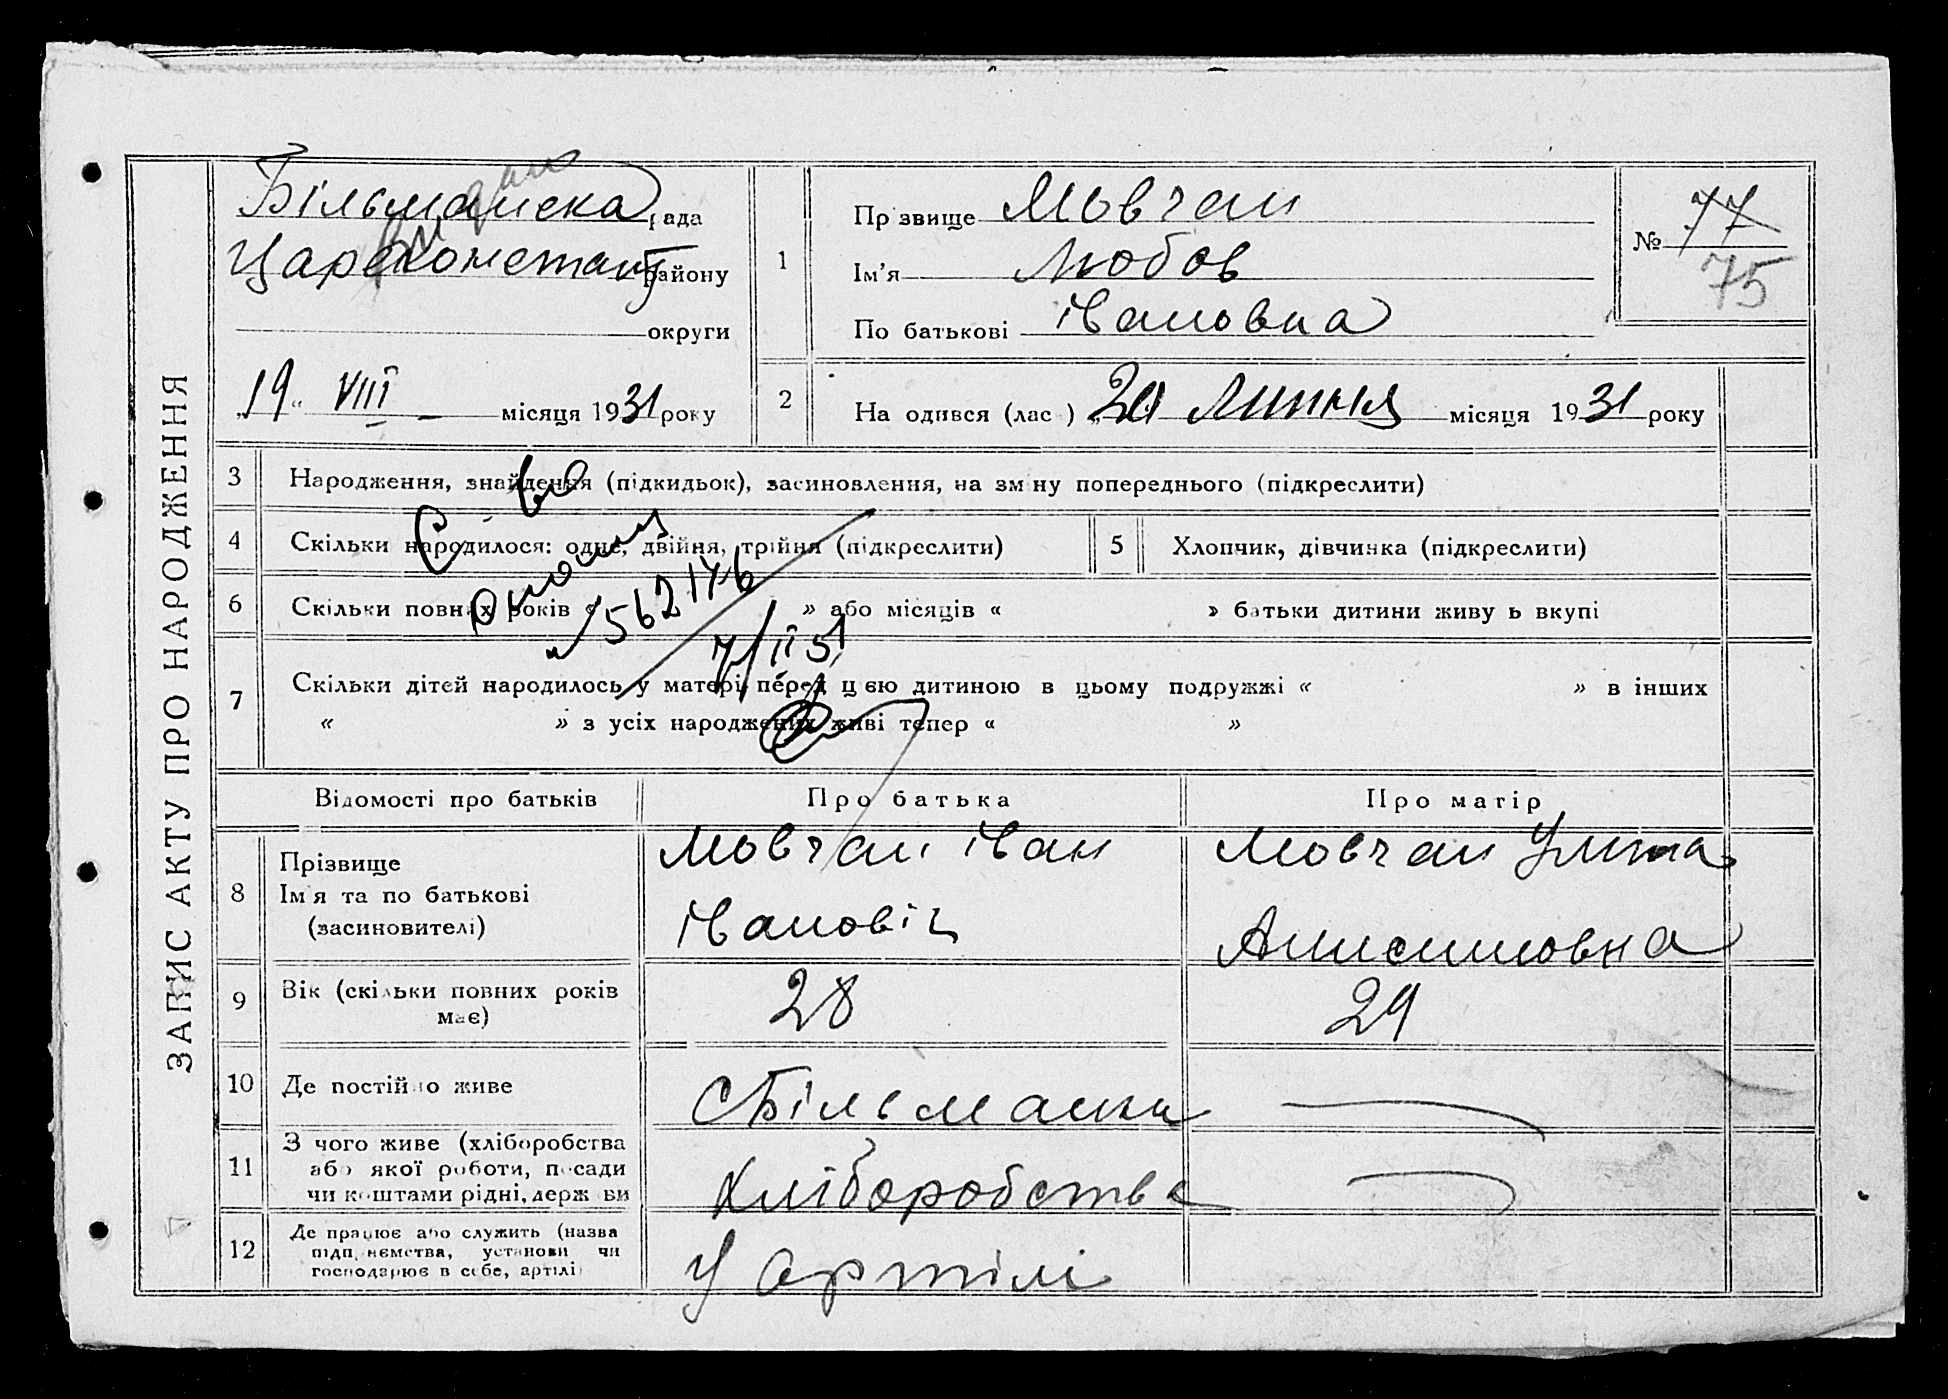 ЗАПИС АКТУ ПРО НАРОДЖЕННЯ
Більманска рада
Царекокстант району
округи
"19" VIII місяця 1931 року
1
Прізвище Мовчан
Ім'я Любов
По батькові Івановна
№ 77
75
2
На одився (лас ) "20 Липня місяця 1931 року
3 Народження, знайдення (підкидьок), засиновлення, на зміну попереднього (підкреслити)
4 Скільки народилося: одне, двійня, трійня (підкреслити)
5 Хлопчик, дівчинка (підкреслити)
6 Скільки повних років « » або місяців « » батьки дитини живу ь вкупі
С-во
562176
7/II 51
7 Скільки дітей народилось у матері перед цією дитиною в цьому подружжі « » в інших
« » з усіх народжених живі тепер « »
Відомості про батьків Про батька Про матір
8 Прізвище
Ім'я та по батькові
(засиновителі)
Мовчан Іван
Івановіч
Мовчан Улита
Анисимовна
9 Вік (скільки повних років
має)
28 29
10 Де постійно живе
с Більманка
11 З чого живе (хліборобства
або якої роботи, посади
чи коштами рідні, держ ви
Хліборобства
12 Де працює або служить (назва
підп.иємства, установи чи
господарює в себе, артілі
У артілі